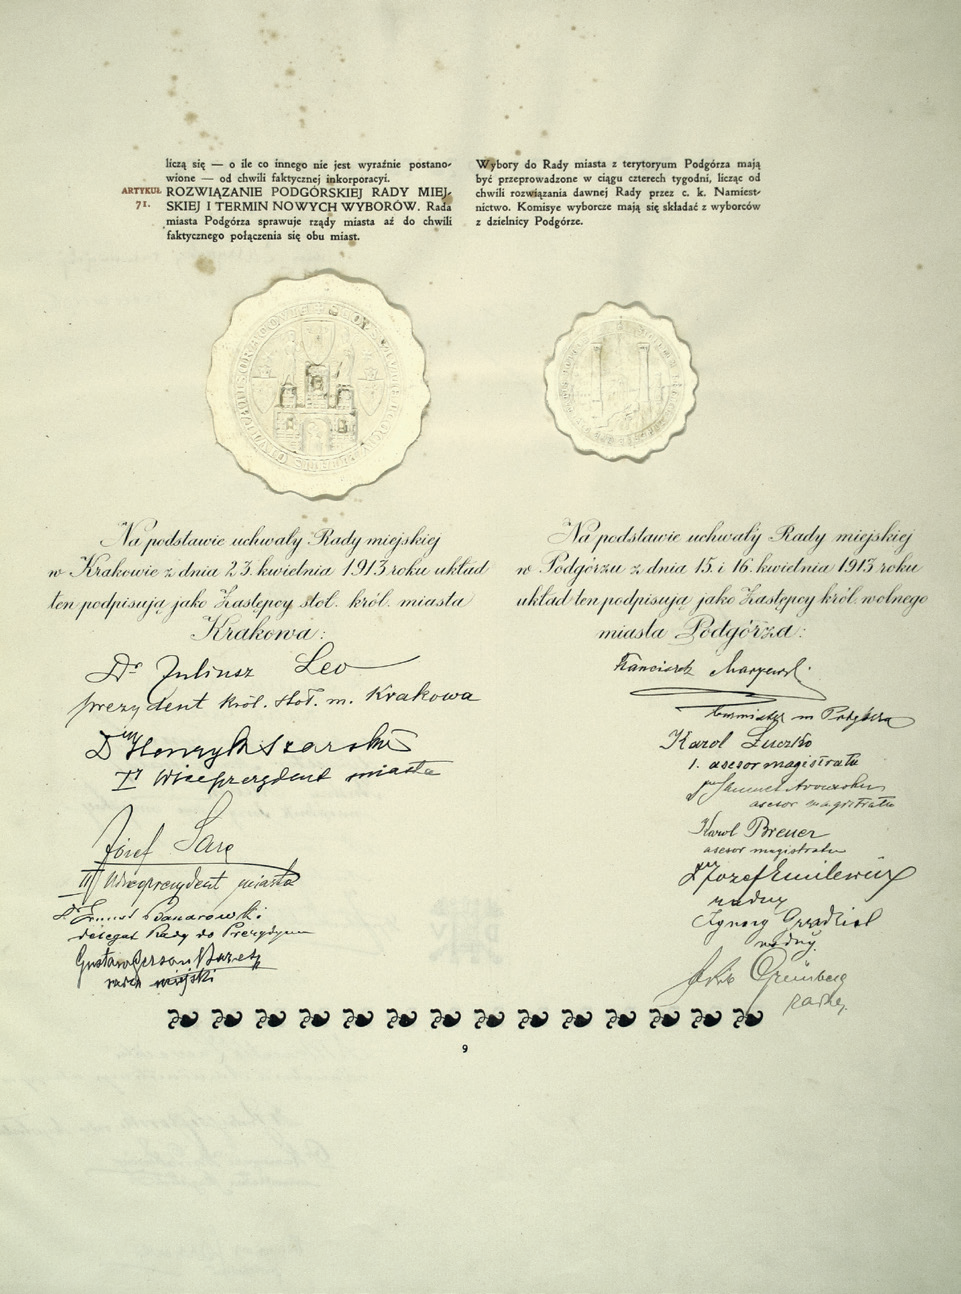 liczą się — o ile co innego nie jest wyraźnie postano-
wione — od chwili faktycznej inkorporacyi.
ARTYKUŁ 71.
ROZWIĄZANIE PODGÓRSKIEJ RADY MIEJ-
SKIEJ I TERMIN NOWYCH WYBORÓW. Rada
miasta Podgórza sprawuje rządy miasta aż do chwili
faktycznego połączenia się obu miast.
Wybory do Rady miasta z terytoryum Podgórza mają
być przeprowadzone w ciągu czterech tygodni, licząc od
chwili rozwiązania dawnej Rady przez c. k. Namiest-
nictwo. Komisye wyborcze mają się składać z wyborców
z dzielnicy Podgórze.
Na podstawie uchwały Rady miejskiej
w Krakowie z dnia 23. kwietnia 1913 roku układ
ten podpisują jako Zastępcy stoł. król. miasta
Krakowa:
Dr Juliusz Leo
prezydent król. stoł. m. Krakowa
Dr Henryk Szarski
I Wiceprezydent miasta
Józef Sare
II Wiceprezydent miasta
Dr Ernest Bandrowski
delegat Rady do Prezydyum
Gustaw Gerson Bazes
radca miejski
Na podstawie uchwały Rady miejskiej
w Podgórzu z dnia 15. i 16. kwietnia 1913 roku
układ ten podpisują jako Zastępcy król. wolnego
miasta Podgórza:
Franciszek Maryewski
burmistrz m Podgórza
Karol Łuczko
1. asesor magistratu
Dr Samuel
asesor magistratu
Karol Breuer
asesor magistratu
Dr Józef Emilewicz
radny
Ignacy Grządziel
radny
Grünberg
radny
9